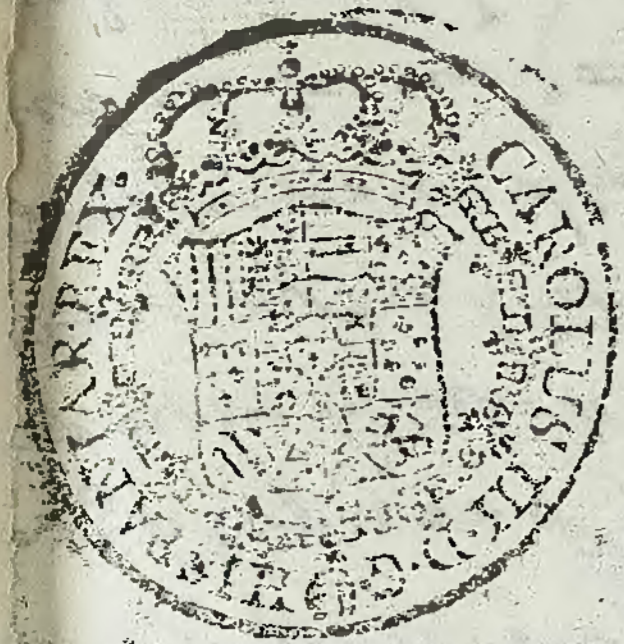 CAROLUS III D.G. HISPANIAR. REX.